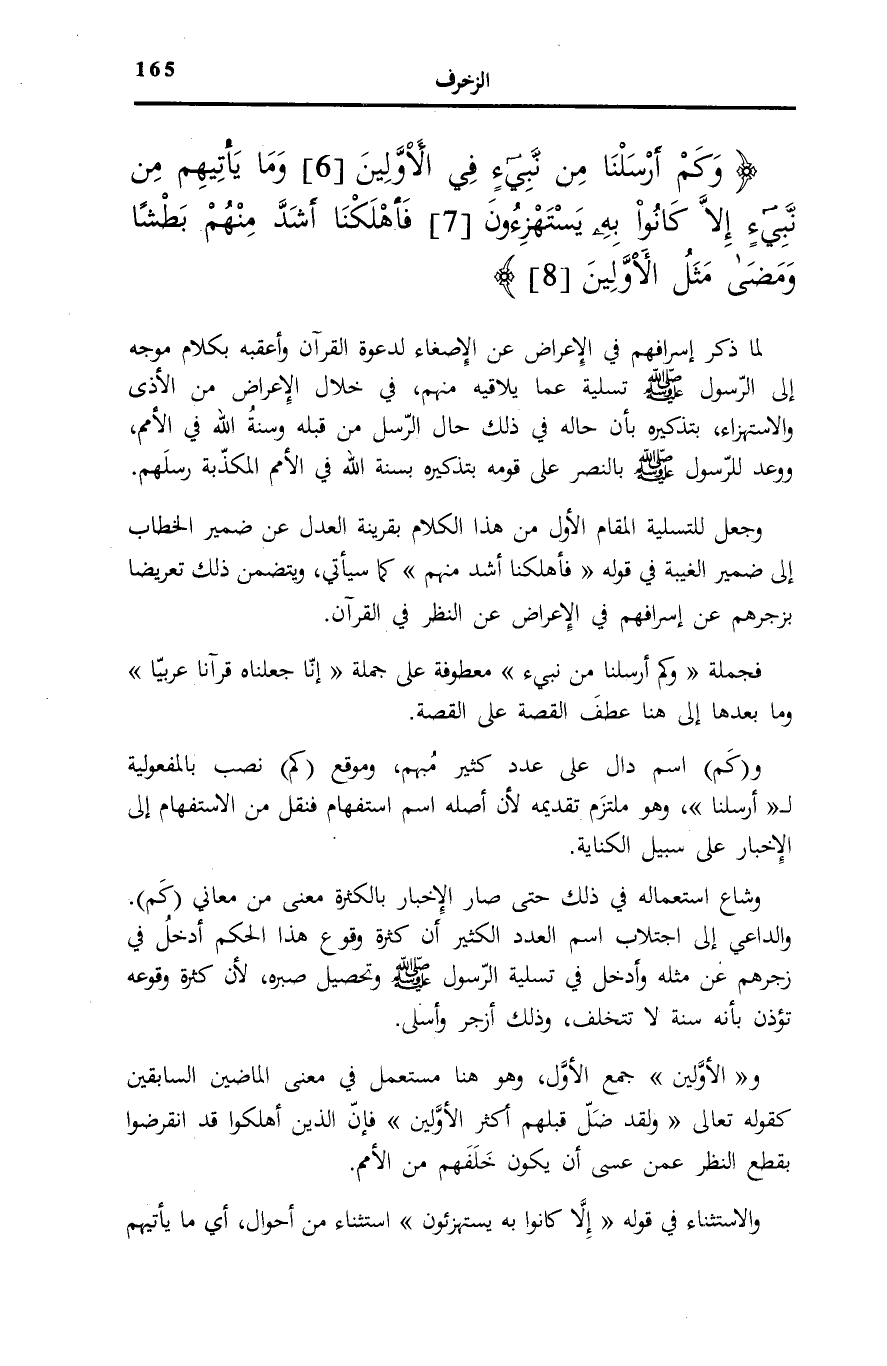 165
الزخرف
﴿ وَكَمْ أَرْسَلْنَا مِن نَّبِيٓءٍ فِي الْأَوَّلِينَ [6] وَمَا يَأْتِيهِم مِن
نَّبِيٓءٍ إِلاَّ كَانُواْ بِهِۦ يَسْتَهْزِءُونَ [7] فَأَهْلَكْنَا أَشَدَّ مِنْهُمْ بَطْشًا
وَمَضَىٰ مَثَلُ الْأَوَّلِينَ [8] ﴾
لما ذكر إسرافهم في الإعراض عن الإصغاء لدعوة القرآن وأعقبه بكلام موجه
إلى الرّسول ﷺ تسلية عما يلاقيه منهم، في خلال الإعراض من الأذى
والاستهزاء، بتذكيره بأن حاله في ذلك حال الرّسل من قبله وسنةُ الله في الأمم،
ووعد للرّسول ﷺ بالنصر على قومه بتذكيره بسنة الله في الأمم المكذّبة رسلَهم.
وجعل للتسلية المقام الأول من هذا الكلام بقرينة العدل عن ضمير الخطاب
إلى ضمير الغيبة في قوله « فأهلكنا أشد منهم » كما سيأتي، ويتضمن ذلك تعريضا
بزجرهم عن إسرافهم في الإعراض عن النظر في القرآن.
فجملة « وكم أرسلنا من نبيء » معطوفة على جملة « إنّا جعلناه قرآنا عربيّا »
وما بعدها إلى هنا عطفَ القصة على القصة.
و(كَم) اسم دال على عدد كثير مُبهم، وموقع (كم) نصب بالمفعولية
لـ« أرسلنا »، وهو ملتزَم تقديمه لأن أصله اسم استفهام فنقل من الاستفهام إلى
الإخبار على سبيل الكناية.
وشاع استعماله في ذلك حتى صار الإخبار بالكثرة معنى من معاني (كَم).
والداعي إلى اجتلاب اسم العدد الكثير أن كثرة وقوع هذا الحكم أدخلُ في
زجرهم عن مثله وأدخل في تسلية الرّسول ﷺ وتحصيل صبره، لأن كثرة وقوعه
تؤذن بأنه سنة لا تتخلف، وذلك أزجر وأسلى.
و« الأوَّلين » جمع الأوَّل، وهو هنا مستعمل في معنى الماضين السابقين
كقوله تعالى « ولقد ضَلّ قبلهم أكثر الأوَّلين » فإنّ الذين أهلكوا قد انقرضوا
بقطع النظر عمن عسى أن يكون خَلَفَهم من الأمم.
والاستثناء في قوله « إلَّا كانوا به يستهزئون » استثناء من أحوال، أي ما يأتيهم